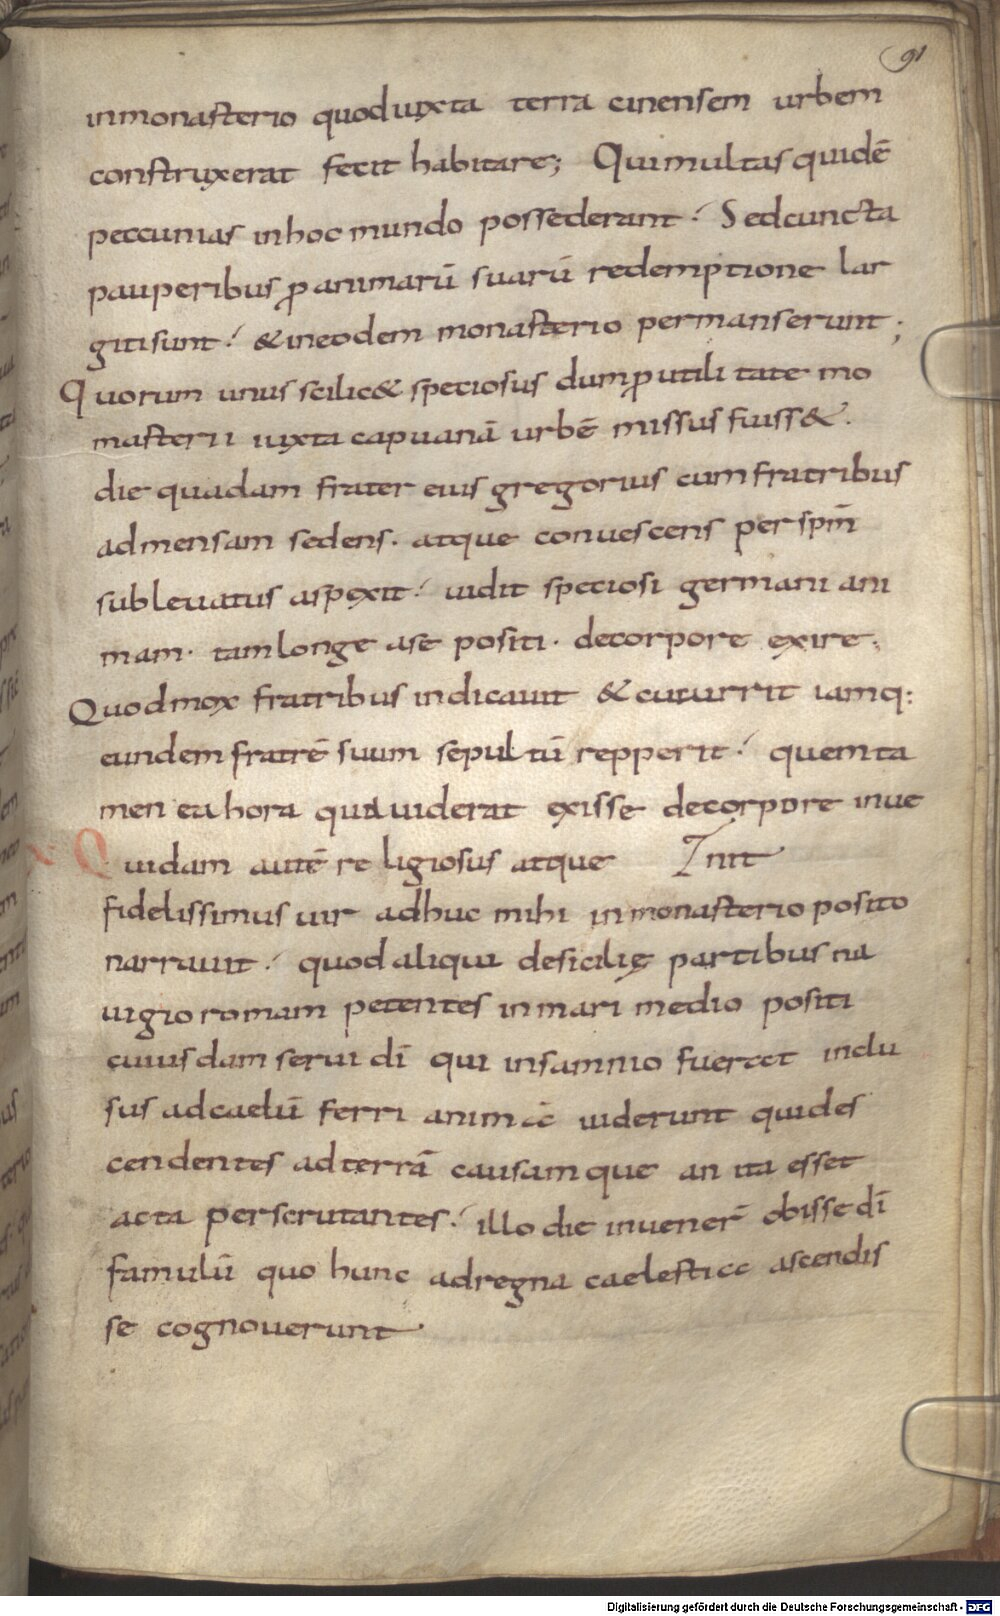 91
inmonasterio quod iuxta terra cinensem urbem
construxerat fecit habitare; Qui multas quidē
peccunias inhoc mundo possederant. Sed cuncta
pauperibus ꝓ animarū suarū redemptione lar
giti sunt. & ineodem monasterio permanserunt;
Quorum unus scilic& speciosus dum ꝓ utilitate mo
nasterii iuxta capuanā urbē missus fuiss&.
die quadam frater eius gregorius cum fratribus
admensam sedens. atque conuescens per spm̄
subleuatus aspexit. uidit speciosi germani ani
mam. tam longe ase positi. decorpore exire;
Quod mox fratribus indicauit & cucurrit iamq:
eundem fratrē suum sepultū repperit. quem ta
men ea hora qua uiderat exisse decorpore inue
x. Quidam autē religiosus atque nit
fidelissimus uir adhuc mihi inmonasterio posito
narrauit. quod aliqui desicilię partibus na
uigio romam petentes inmari medio positi
cuiusdam serui dī qui insamnio fuerat inclu
sus adcaelū ferri animā uiderunt quides
cendentes adterrā causamque an ita esset
acta perscrutantes. illo die inuener̄ obisse dī
famulū quo hunc adregna caelestia ascendis
se cognouerunt
Digitalisierung gefördert durch die Deutsche Forschungsgemeinschaft - DFG